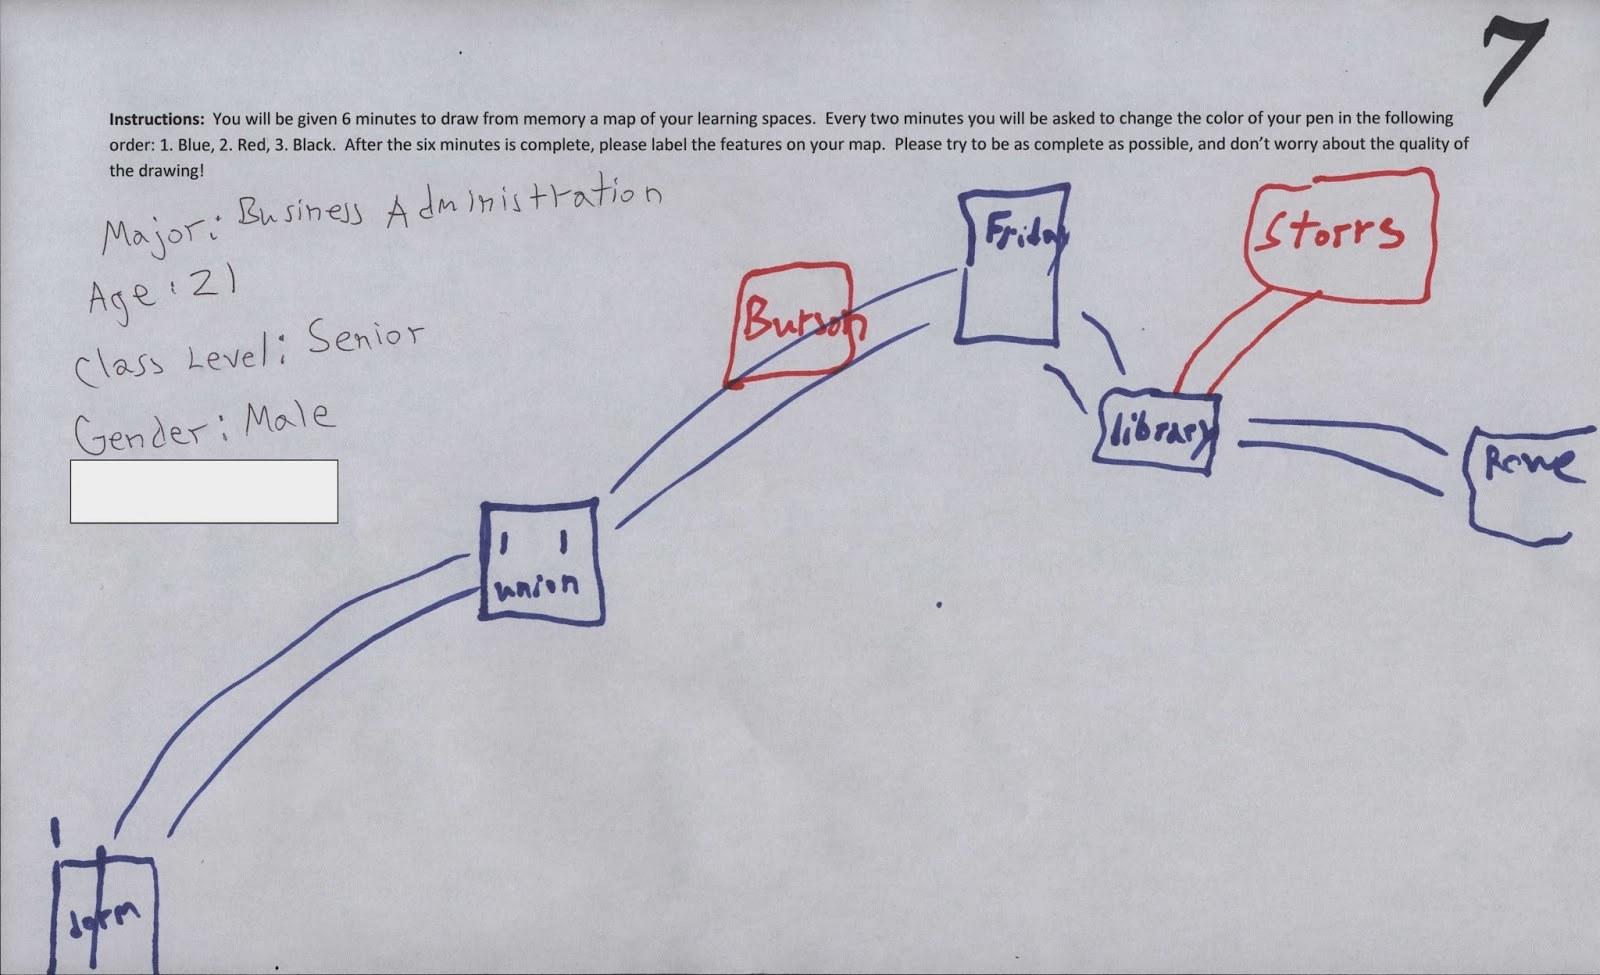 7
Instructions: You will be given 6 minutes to draw from memory a map of your learning spaces. Every two minutes you will be asked to change the color of your pen in the following
order: 1. Blue, 2. Red, 3. Black. After the six minutes is complete, please label the features on your map. Please try to be as complete as possible, and don't worry about the quality of
the drawing!
Major: Business Administration
Age: 21
Class Level: Senior
Gender: Male
Friday
Storrs
Burson
library
Rowe
union
dorm